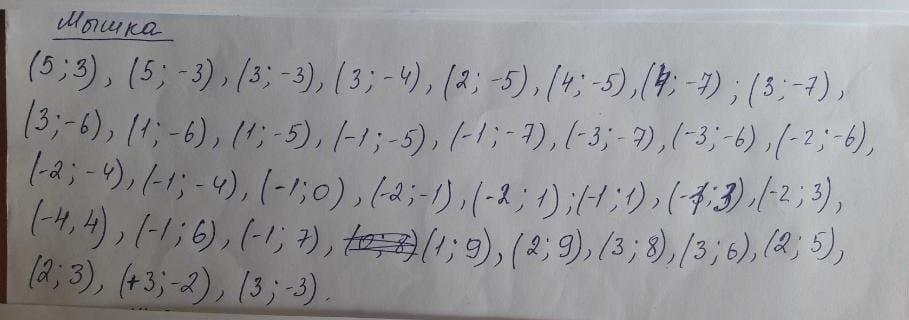 Мышка
(5;3), (5;-3), (3;-3), (3;-4), (2;-5), (4;-5), (4;-7); (3;-7),
(3;-6), (1;-6), (1;-5), (-1;-5), (-1;-7), (-3;-7), (-3;-6), (-2;-6),
(-2;-4), (-1;-4), (-1;0), (-2;-1), (-2;1); (-1;1), (-2;3),
(-4,4), (-1;6), (-1;7), (1;9), (2;9), (3;8), (3;6), (2;5),
(2;3), (+3;-2), (3;-3).